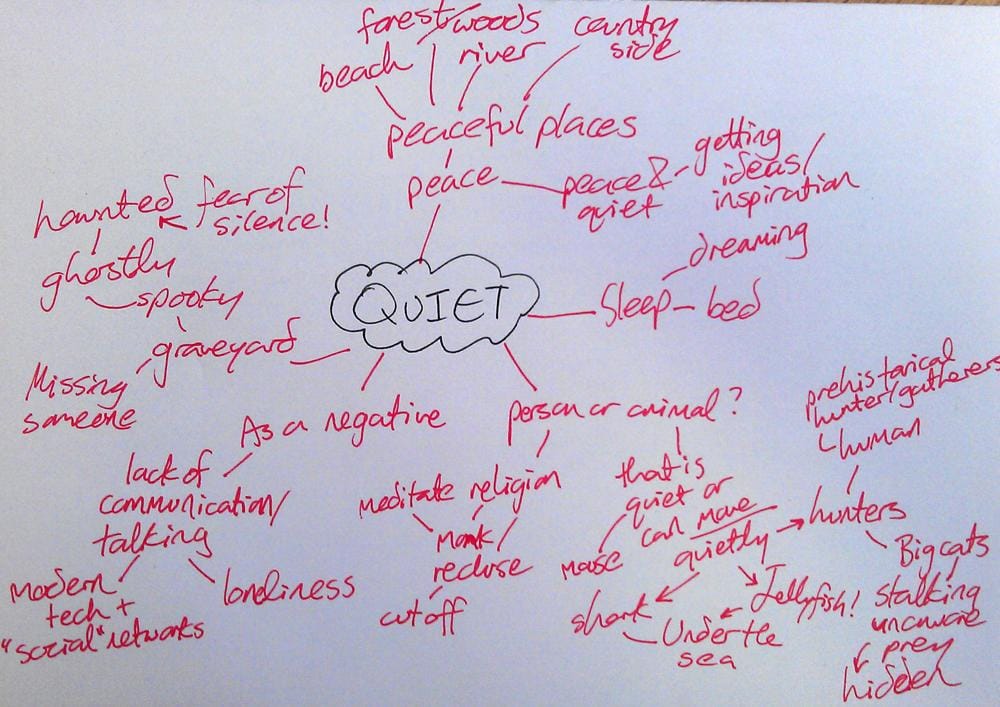 forest/woods
country
side
beach
river
peaceful places
peace
peace &
quiet
getting
ideas/
inspiration
haunted
fear of
silence!
ghostly
spooky
graveyard
Missing
someone
QUIET
dreaming
Sleep – bed
As a negative
lack of
communication/
talking
modern
tech +
"social" networks
loneliness
person or animal?
meditate
religion
monk/
recluse
cut off
that is
quiet or
can move
quietly
mouse
shark
Jellyfish!
Under the
sea
hunters
prehistorical
hunter/gatherers
human
Big cats
stalking
unaware
prey
hidden